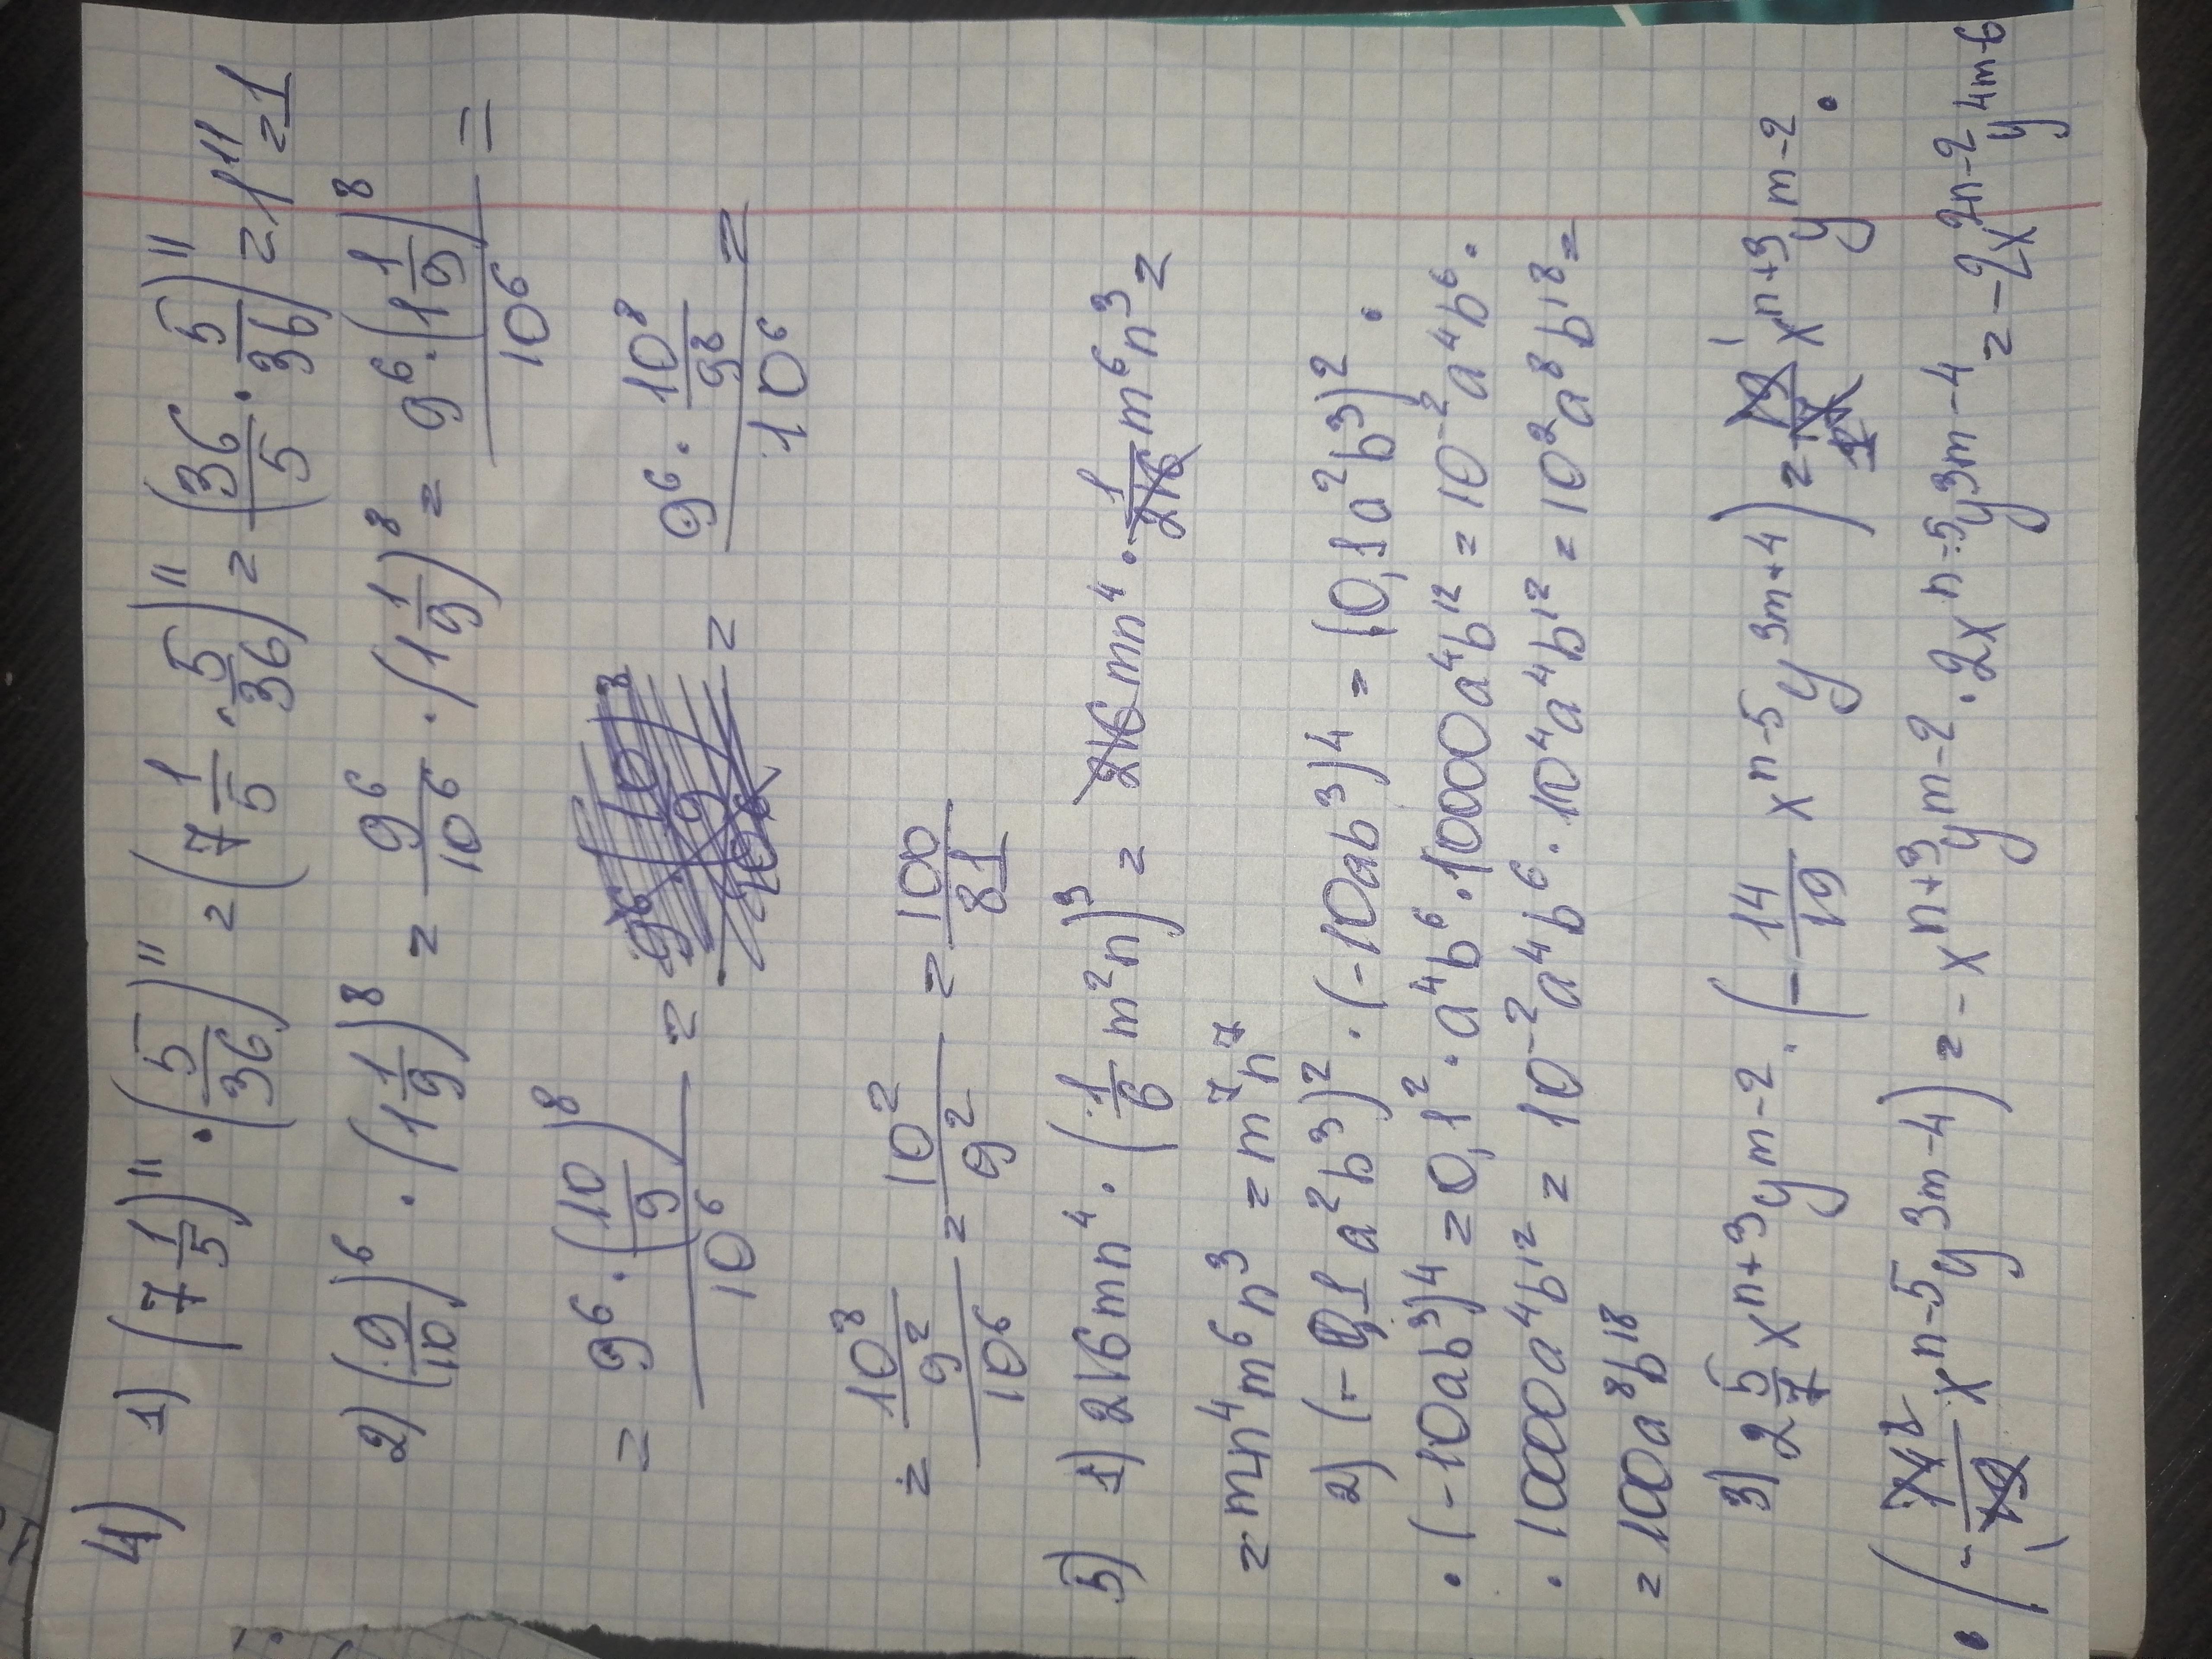 4) 1) (7 1/5)¹¹ · (5/36)¹¹ = (7 1/5 · 5/36)¹¹ = (36/5 · 5/36)¹¹ = 1¹¹ = 1
2) (9/10)⁶ · (1 1/9)⁸ = 9⁶/10⁶ · (1 1/9)⁸ = 9⁶ · (1 1/9)⁸ / 10⁶ =
= 9⁶ · (10/9)⁸ / 10⁶ = = 9⁶ · 10⁸/9⁸ / 10⁶ =
= 10⁸/9² / 10⁶ = 10²/9² = 100/81
5) 1) 216mn⁴ · (1/6 m²n)³ = 216mn⁴ · 1/216 m⁶n³ =
= mn⁴m⁶n³ = m⁷n⁷
2) (-0,1a²b³)² · (-10ab³)4 = (0,1a²b³)² ·
· (-10ab³)4 = 0,1² · a⁴b⁶ · 10000a⁴b¹² = 10⁻²a⁴b⁶ ·
· 10000a⁴b¹² = 10⁻²a⁴b⁶ · 10⁴a⁴b¹² = 10²a⁸b¹⁸ =
= 100a⁸b¹⁸
3) 2 5/7 xⁿ⁺³yᵐ⁻² · (- 14/19 xⁿ⁻⁵y³ᵐ⁺⁴) = 19/7 xⁿ⁺³yᵐ⁻² ·
· (- 14/19 xⁿ⁻⁵y³ᵐ⁻⁴) = -xⁿ⁺³yᵐ⁻² · 2xⁿ⁻⁵y³ᵐ⁻⁴ = -2x²ⁿ⁻²y⁴ᵐ⁻⁶